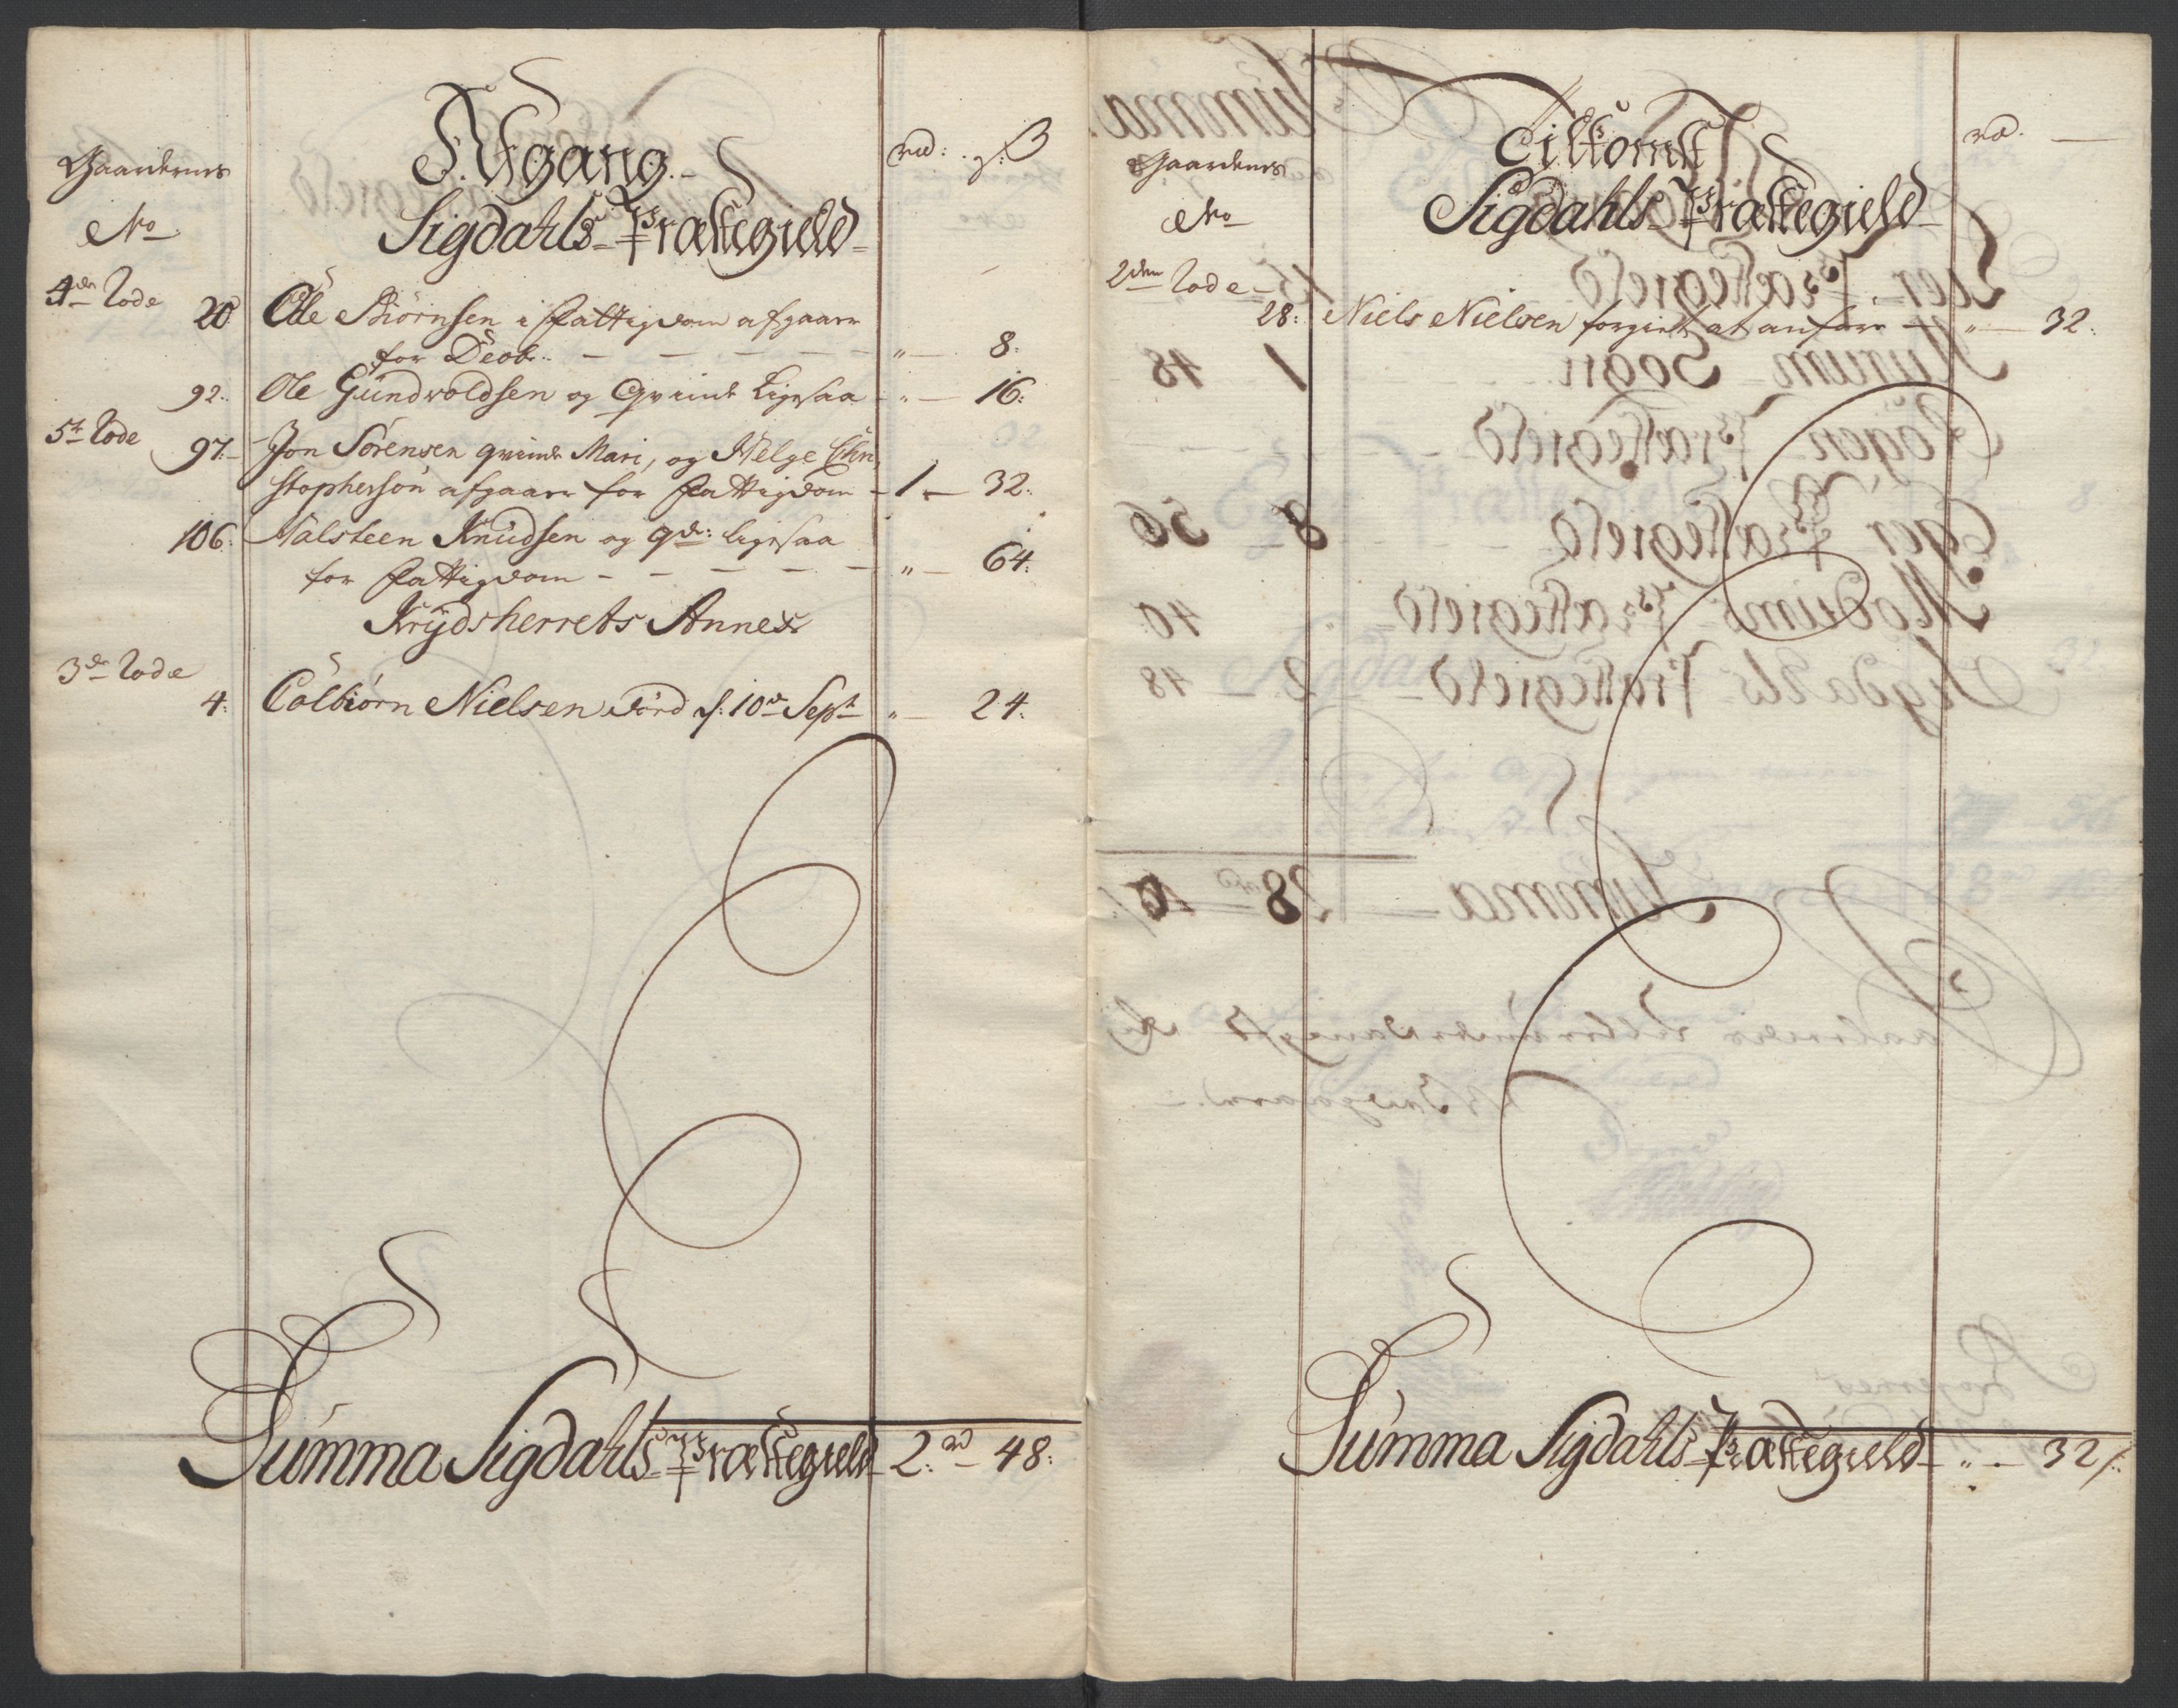 Afgang
rd: ß
Gaardernes
No
Sigdahls Præstegield
4de Rode
20 Ole Biörnsen i Fattigdom afgaar
for Deel - - - - " 8:
92. Ole Gundvoldsen og Qvinde ligesaa " 16:
5te Rode
97. Jon Sörensen qvinde Mari, og Helge Chri
stophersön afgaar for Fattigdom - 1 - 32:
106. Halsteen Knudsen og qde: ligesaa
for Fattigdom - - - - " 64:
Krydsherrets Annex
3de Rode
4: Colbiörn Nielsen död d: 10de Sept " 24:
Summa Sigdahls Præstegield 2 rd 48:
Tilkomst
rd. -
Gaardernes
No
Sigdahls Præstegield
2den Rode
28: Niels Nielsen forgiet at anföre - " 32:
Summa Sigdahls Præstegield " - 32